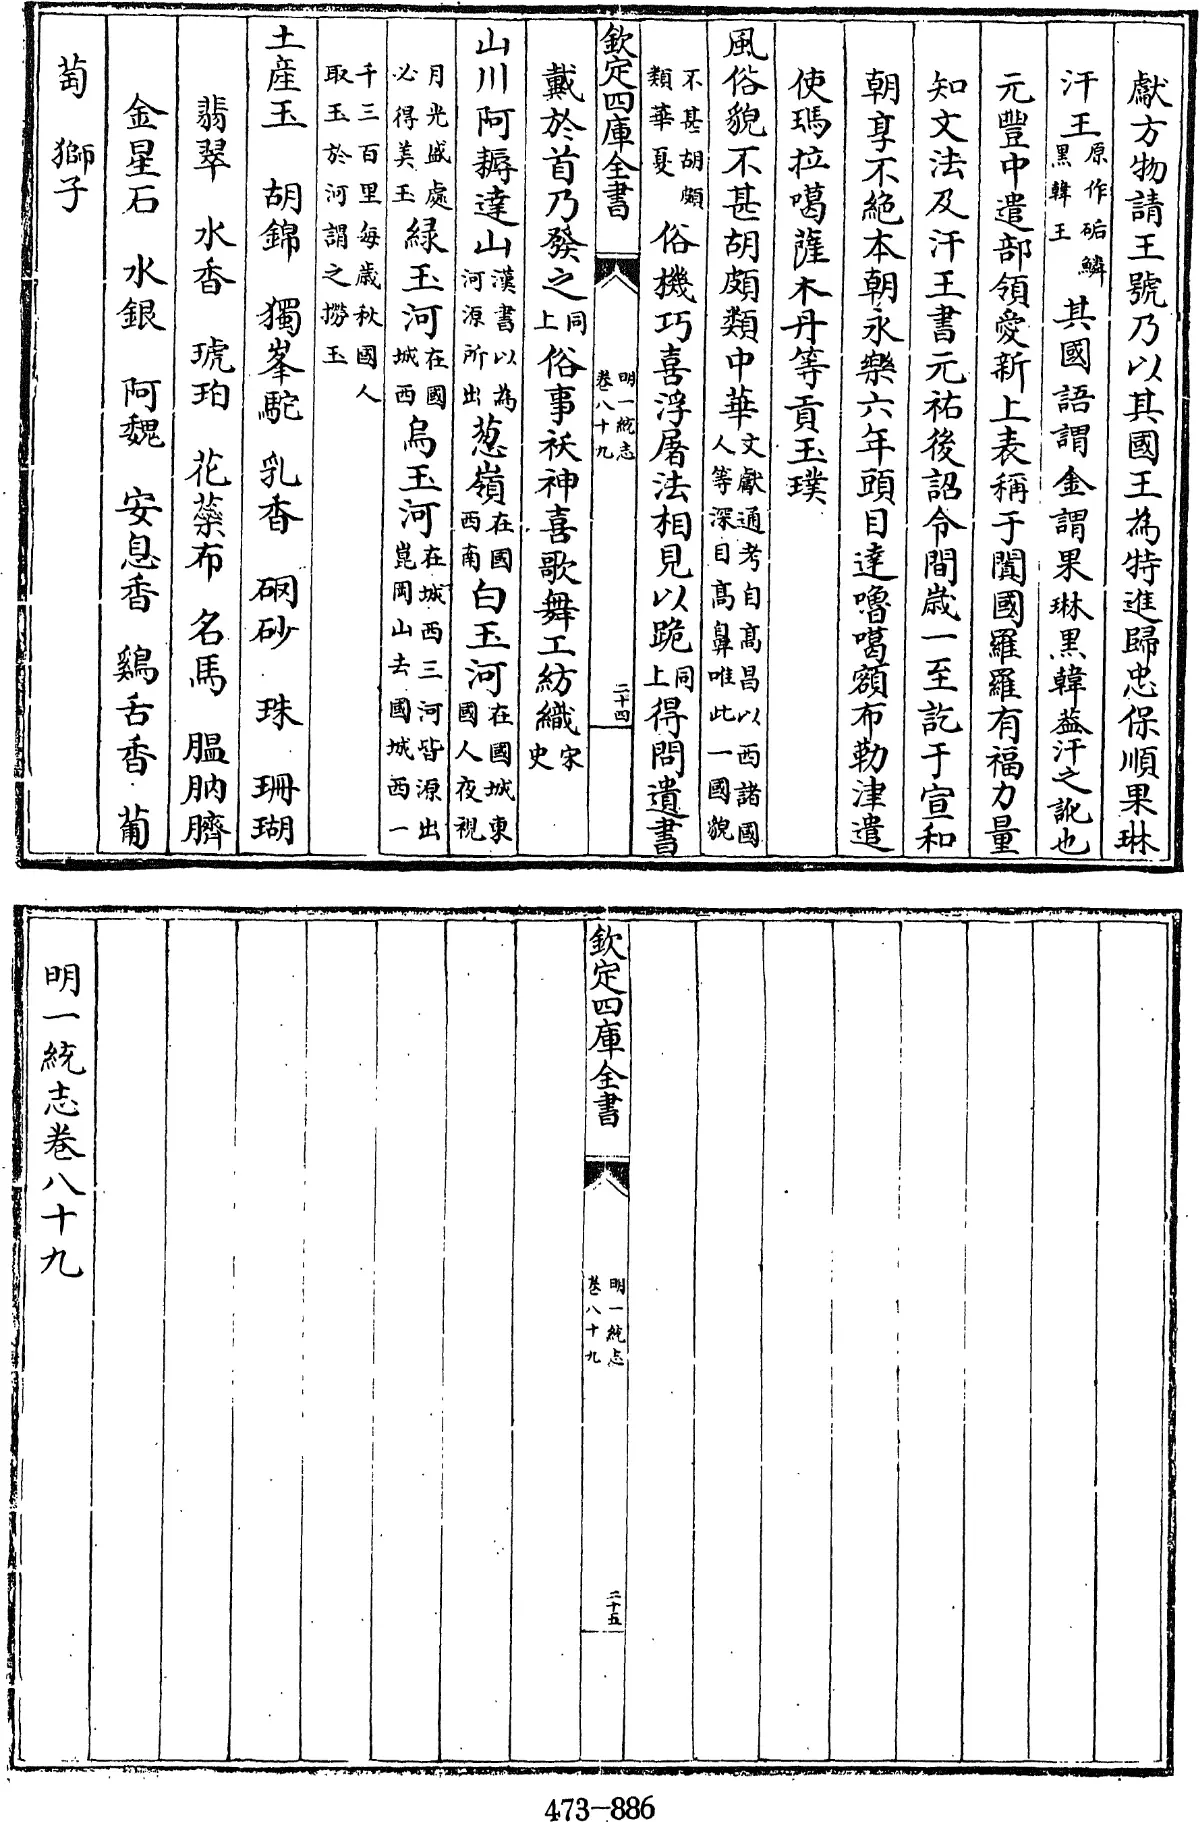 獻方物請王號乃以其國王為特進歸忠保順果琳
汗王原作𡛟鱗黑韓王其國語謂金謂果琳黑韓蓋汗之訛也
元豐中遣部領愛新上表稱于闐國羅羅有福力量
知文法及汗王書元祐後詔令間歲一至訖于宣和
朝享不絶本朝永樂六年頭目達嚕噶額布勒津遣
使瑪拉噶薩木丹等貢玉璞
風俗貌不甚胡頗類中華文獻通考自髙昌以西諸國人等深目髙鼻唯此一國貌
不甚胡頗類華夏俗機巧喜浮屠法相見以跪同上得問遺書
欽定四庫全書
明一統志
卷八十九
二十四
戴於首乃發之同上俗事祅神喜歌舞工紡織宋史
山川阿耨達山漢書以為河源所出葱嶺在國西南白玉河在國城東國人夜視
月光盛處必得美玉緑玉河在國城西烏玉河在城西三河皆源出崑岡山去國城西一
千三百里每歲秋國人取玉於河謂之撈玉
土產玉 胡錦 獨峯駝 乳香 硇砂 珠 珊瑚
翡翠 水香 琥珀 花蘂布 名馬 膃肭臍
金星石 水銀 阿魏 安息香 鷄舌香 葡
萄 獅子
欽定四庫全書
明一統志
卷八十九
二十五
明一統志卷八十九
473-886